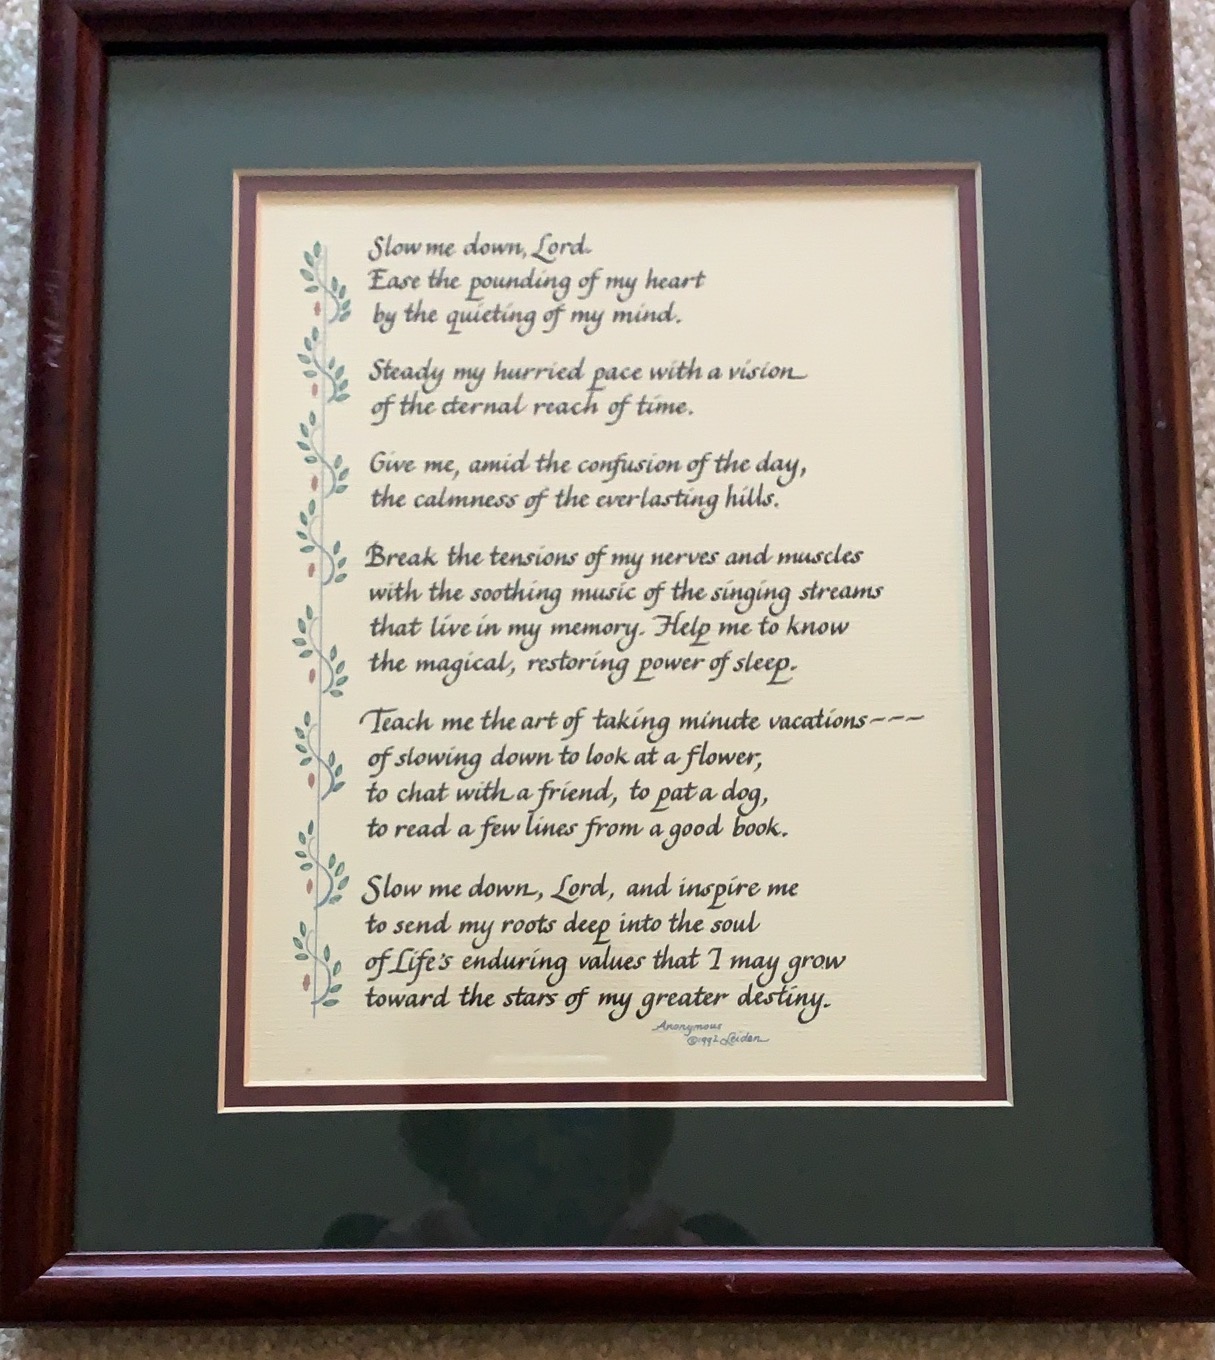 Slow me down, Lord.
Ease the pounding of my heart
by the quieting of my mind.
Steady my hurried pace with a vision
of the eternal reach of time.
Give me, amid the confusion of the day,
the calmness of the everlasting hills.
Break the tensions of my nerves and muscles
with the soothing music of the singing streams
that live in my memory. Help me to know
the magical, restoring power of sleep.
Teach me the art of taking minute vacations---
of slowing down to look at a flower,
to chat with a friend, to pat a dog,
to read a few lines from a good book.
Slow me down, Lord, and inspire me
to send my roots deep into the soul
of Life's enduring values that I may grow
toward the stars of my greater destiny.
Anonymous
©1992 Leiden